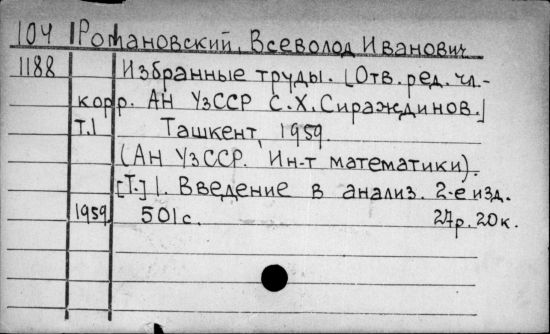 104 Романовский, Всеволод Иванович
1188 Избранные труды. [Отв. ред. чл.-
корр. АН УзССР С.Х. Сираждинов.]
Т.1 Ташкент, 1959.
(АН УзССР. Ин-т математики).
[Т.] 1. Введение в анализ. 2-е изд.
1959 501с. 27р. 20к.